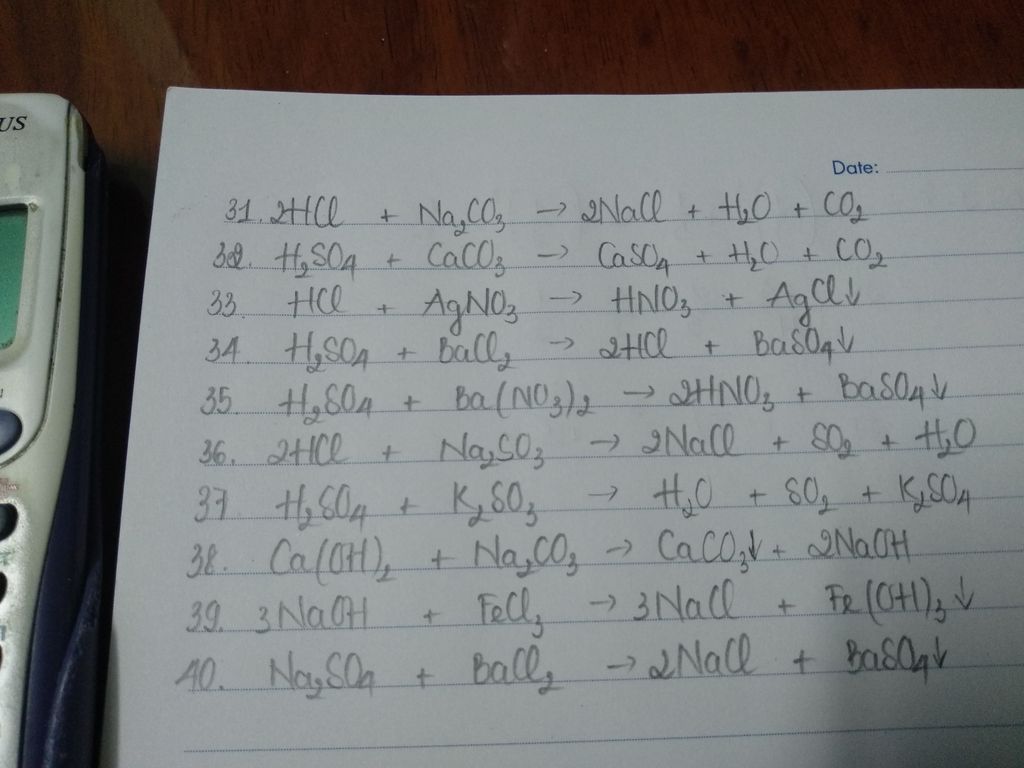 US
Date:
31. 2HCl + Na₂CO₃ → 2NaCl + H₂O + CO₂
32. H₂SO₄ + CaCO₃ → CaSO₄ + H₂O + CO₂
33. HCl + AgNO₃ → HNO₃ + AgCl↓
34. H₂SO₄ + BaCl₂ → 2HCl + BaSO₄↓
35. H₂SO₄ + Ba(NO₃)₂ → 2HNO₃ + BaSO₄↓
36. 2HCl + Na₂SO₃ → 2NaCl + SO₂ + H₂O
37 H₂SO₄ + K₂SO₃ → H₂O + SO₂ + K₂SO₄
38. Ca(OH)₂ + Na₂CO₃ → CaCO₃↓ + 2NaOH
39. 3NaOH + FeCl₃ → 3NaCl + Fe(OH)₃↓
40. Na₂SO₄ + BaCl₂ → 2NaCl + BaSO₄↓